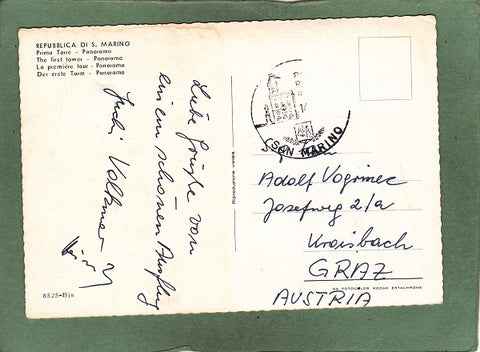 REPUBBLICA DI S. MARINO
Prima Torre - Panorama
The first tower - Panorama
La première tour - Panorama
Der erste Turm - Panorama
Liebe Grüße von
einem schönen Ausflug
Volkmar
8525-Bis
Riproduzione vietata
SAN MARINO
Adolf Vogrinec
Josefweg 2/a
Kroisbach
GRAZ
AUSTRIA
DA FOTOCOLOR KODAK EKTACHROME